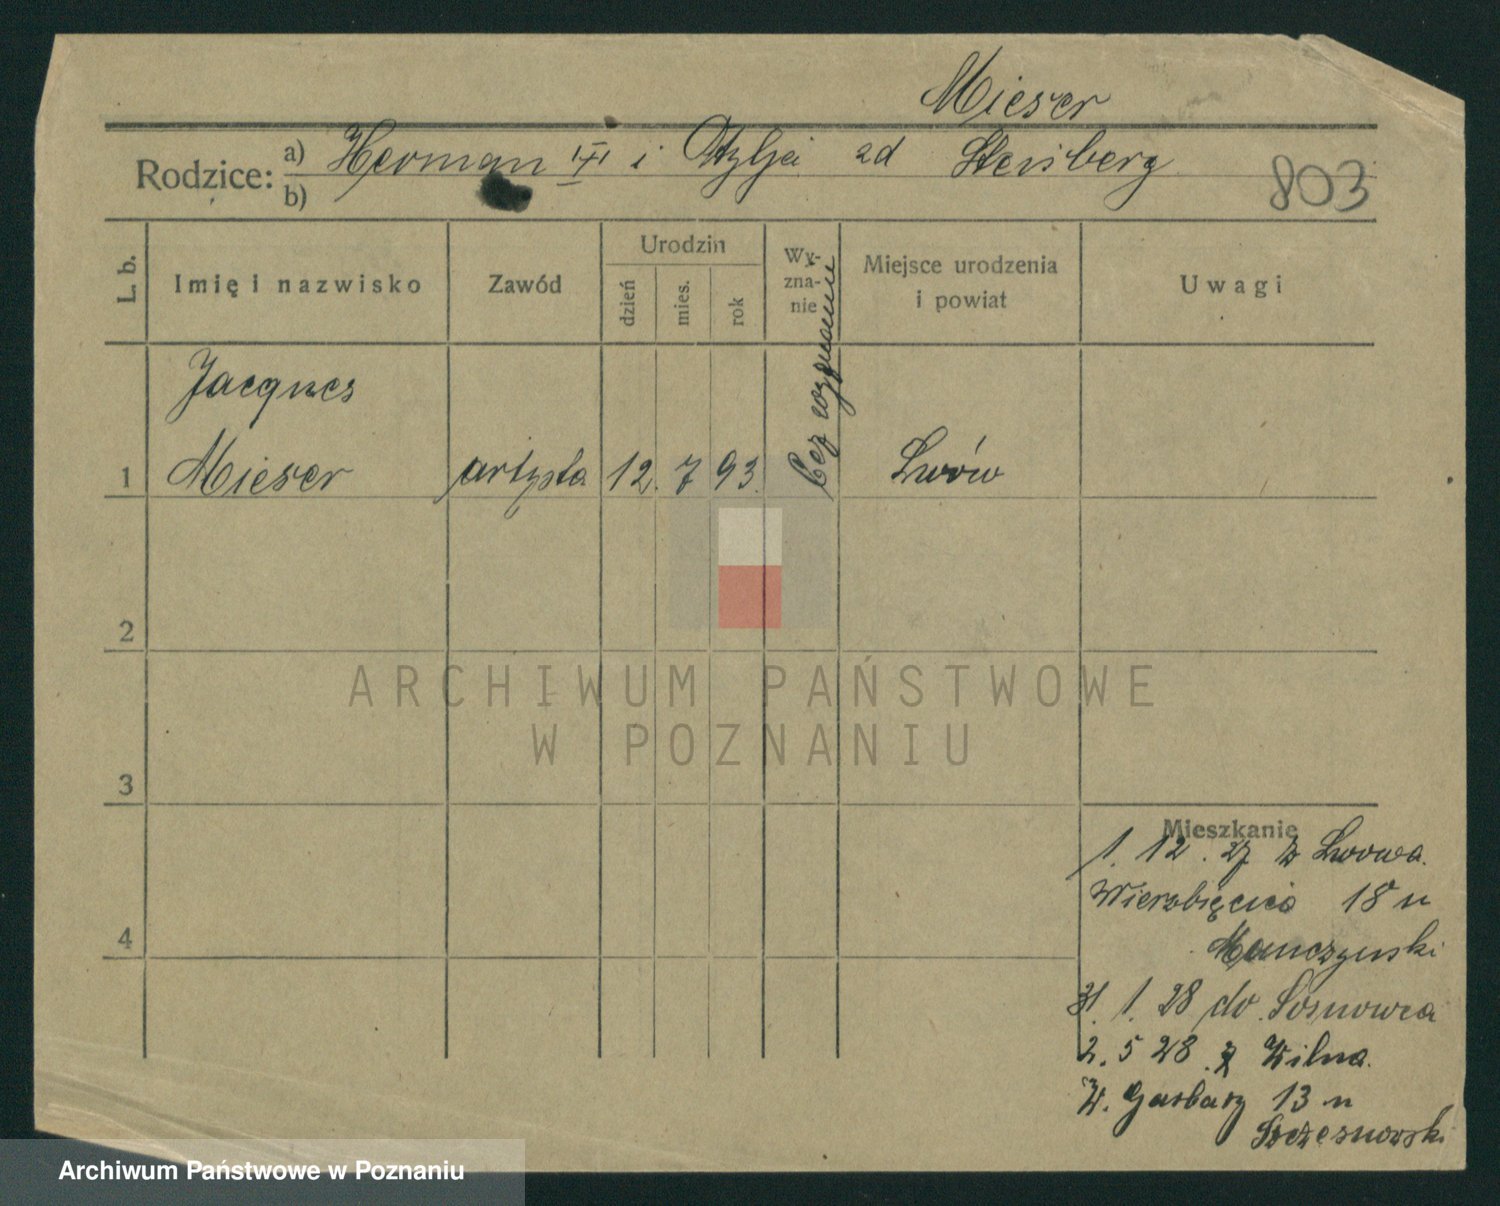 Mieser
Rodzice: a) Herman i Otylja zd Stensberg
b)
803
L. b.
Imię i nazwisko
Zawód
Urodzin
dzień
mies.
rok
Wy-
zna-
nie
Miejsce urodzenia
i powiat
Uwagi
Jacques
1 Mieser artysta 12. 7 93. bez wyznania Lwów
2
3
4
ARCHIWUM PAŃSTWOWE
W POZNANIU
Mieszkanie
1. 12. 27 z Lwowa.
Wierzbięcice 18 u
Manczynski
31. 1. 28 do Sosnowca
2. 5 28. z Wilna.
W. Garbary 13 u
Szczesnowski
Archiwum Państwowe w Poznaniu